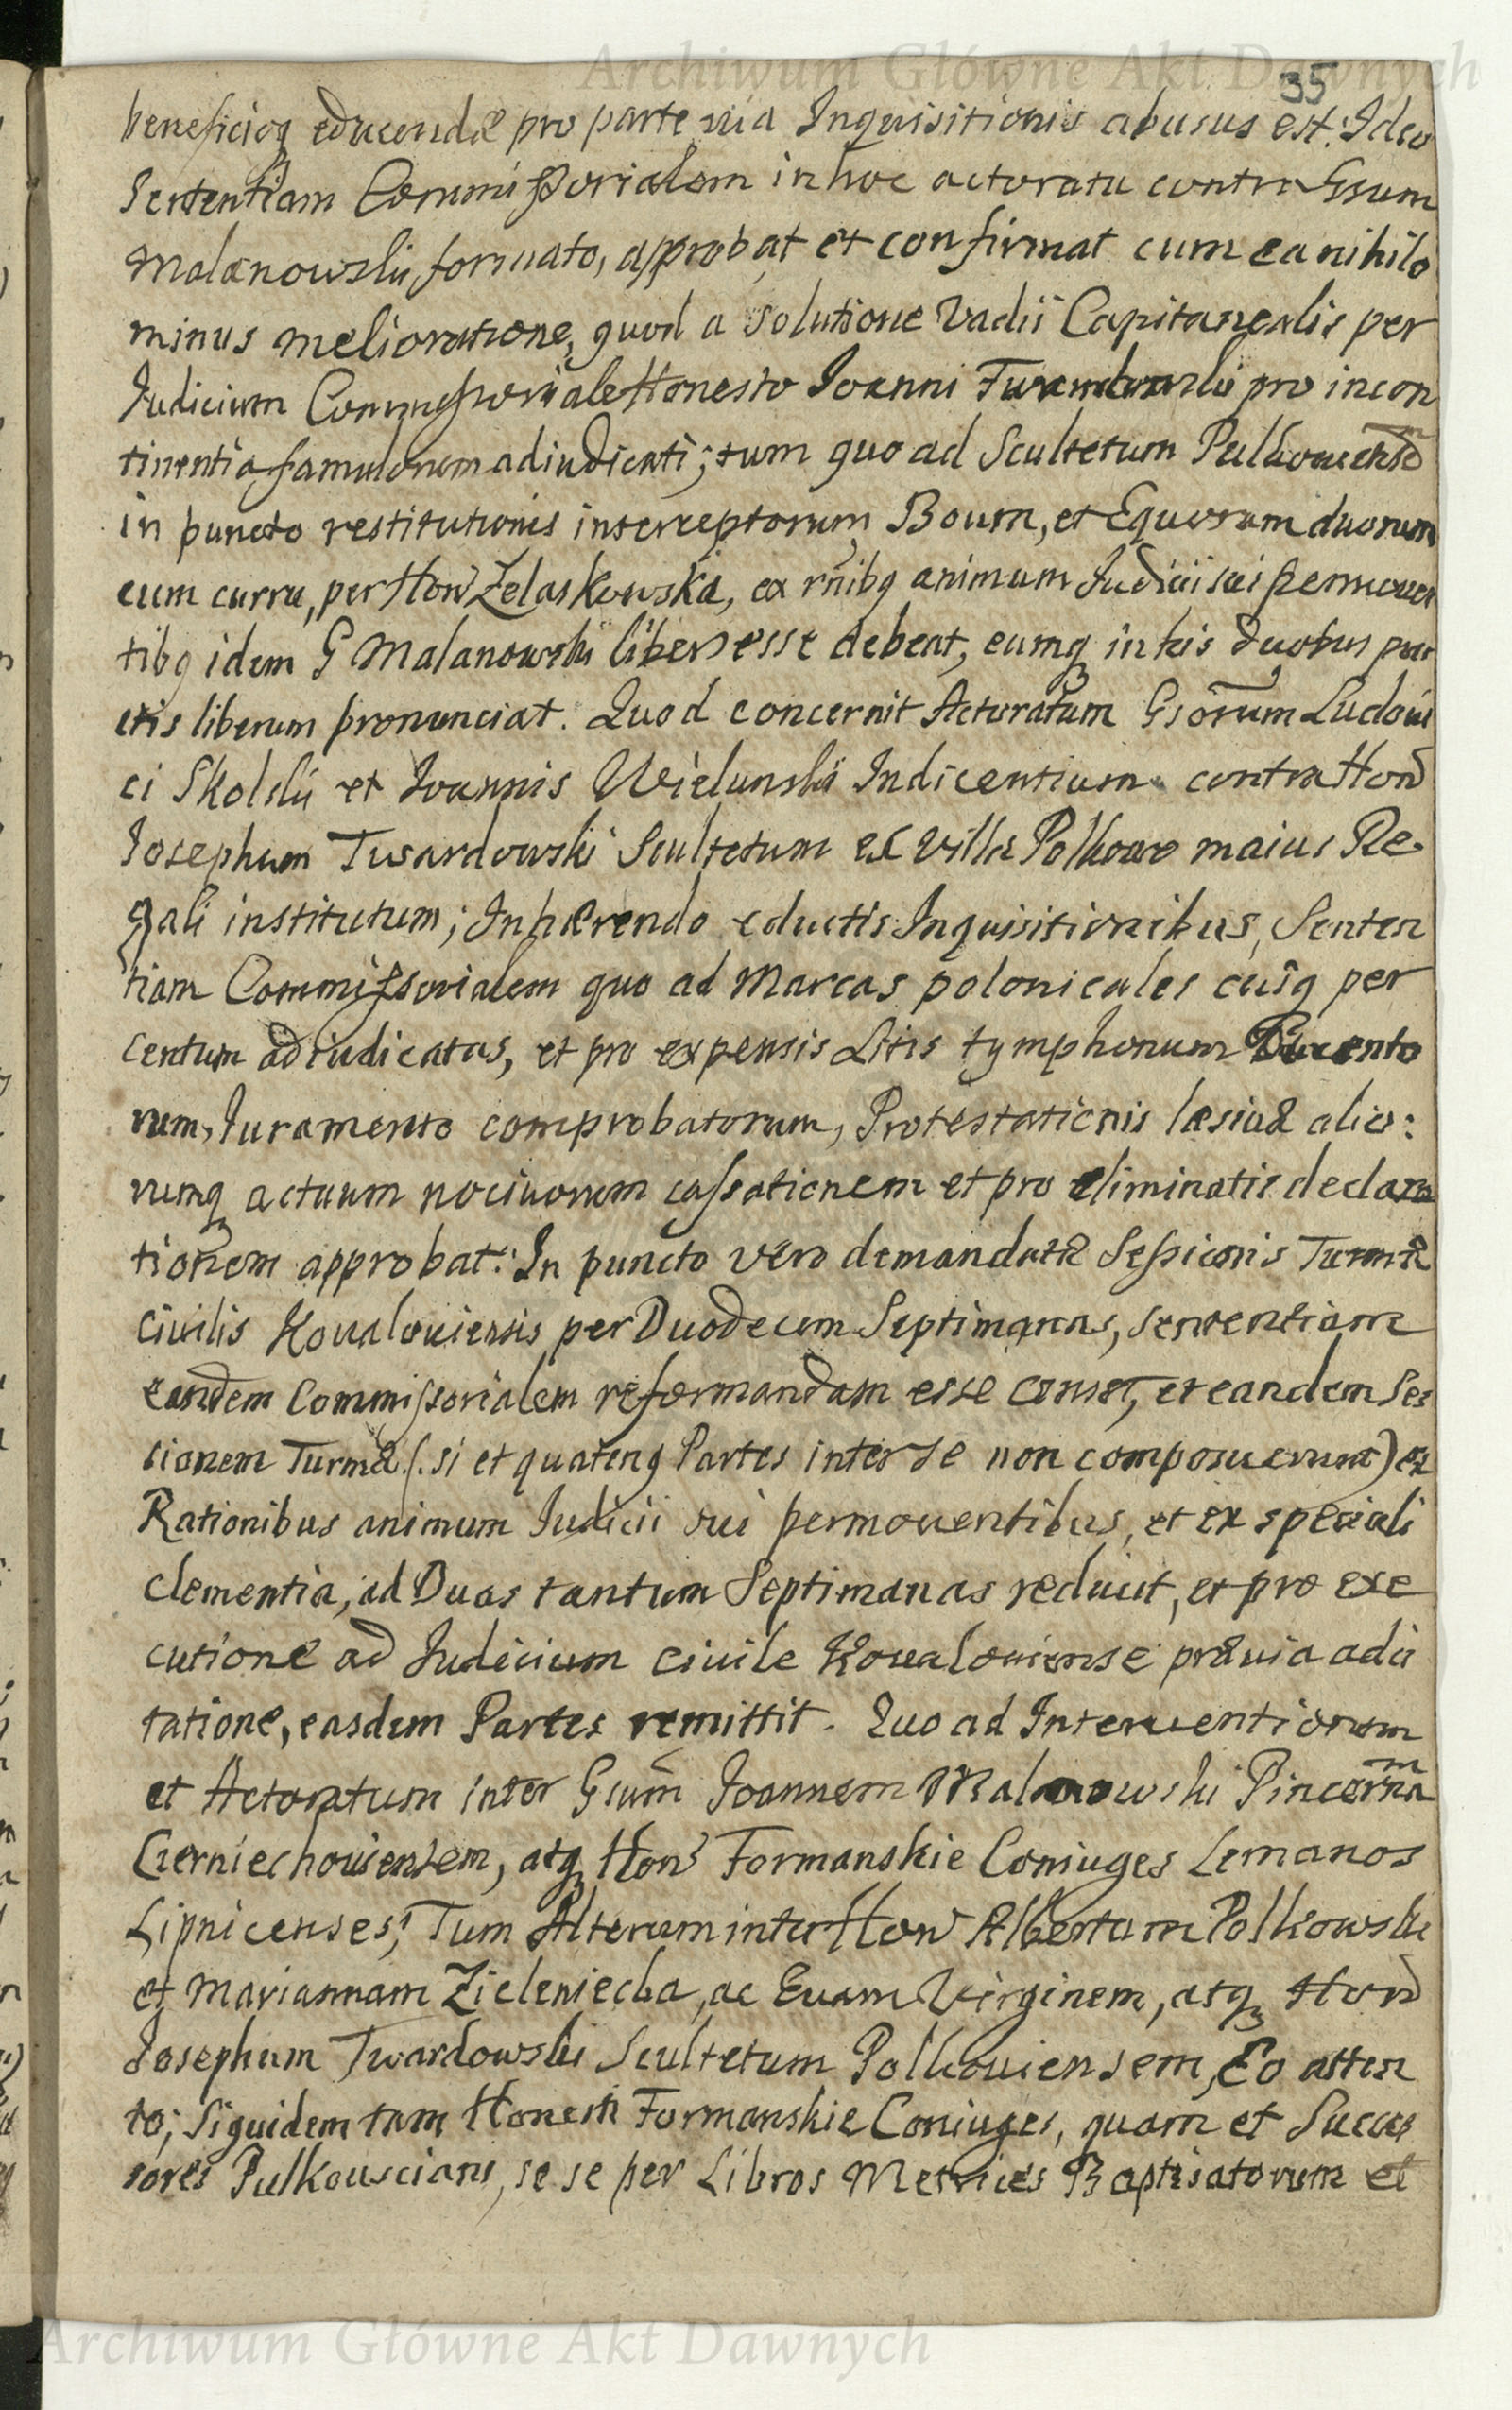 Archiwum Główne Akt Dawnych
35
beneficioq educendæ pro parte sua Inquisitionis abusus est: Ideo
Sententiam Commissorialem in hoc actoratu contra Gsum
Malanowski formato, approbat et confirmat cum ea nihilo
minus melioratione, quod a solutione Vadii Capitanealis per
Iudicium Commissoriale Honesto Ioanni Twardowski pro incon
tinentia famulorum adiudicati; tum quo ad Scultetum Pulkoviensem
in puncto restitutionis interceptorum Boum, et Equorum duorum
cum curru, per Hon Zelaskowski, ex rnibq animum Iudicii sui permoven
tibq idem G Malanowski liber esse debeat, eumq in his duobus pun
ctis liberum pronunciat. Quod concernit Actoratum Gsorum Ludovi
ci Skolski et Ioannis Wielunski Indicentium contra Hon
Iosephum Twardowski Scultetum ex Villa Polkowo maius Re
gali institutum; Inhærendo eductis Inquisitionibus, Senten
tiam Commissorialem quo ad Marcas polonicales cuiq per
Centum adiudicatas, et pro expensis Litis tymphonum Ducento
rum, Iuramento comprobatorum, Protestationis læsivæ alio:
rumq actuum nocivorum cassationem et pro eliminatis declara
tionem approbat: In puncto vero demandatæ Sessionis Turmæ
Civilis Kovaloviensis per Duodecem Septimanas, sententiam
eandem Commissorialem reformandam esse censet, et eandem Ses
sionem Turmæ (. si et quatenq Partes inter se non composuerunt) ex
Rationibus animum Iudicii sui permoventibus, et ex speciali
clementia, ad Duas tantum Septimanas reducit, et pro exe
cutione ad Iudicium civile Kovaloviense prævia adci
tatione, easdem Partes remittit. Quo ad Interventiorum
et Actoratum inter Gsum Ioannem Malanowski Pincernam
Czerniechoviensem, atq Hon Formanskie Coniuges Lemanos
Lipnicenses; Tum Alterum inter Hon Albertum Polkowski
et Mariannam Zieleniecka, ac Evam Virginem, atq Hon
Iosephum Twardowski Scultetum Polkoviensem, Eo atten
to; Siquidem tam Honesti Formanskie Coniuges, quam et Succes
sores Pulkousciani, se se per Libros Metrices Baptisatorum et
Archiwum Główne Akt Dawnych